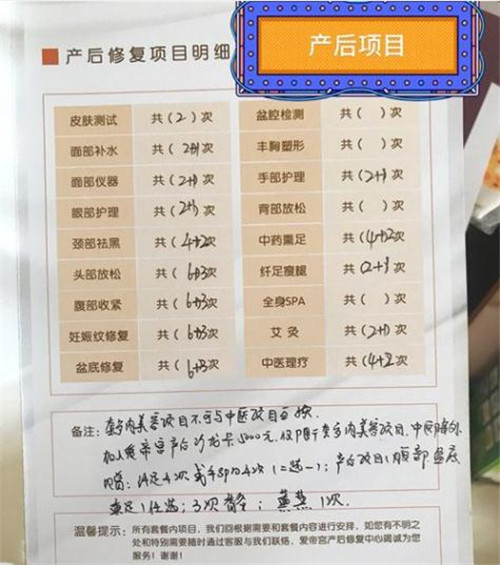 产后修复项目明细
产后项目
皮肤测试 共(2)次 盆腔检测 共( )次
面部补水 共(2+1)次 丰胸塑形 共( )次
面部仪器 共(2+1)次 手部护理 共(2+1)次
眼部护理 共(2+1)次 背部放松 共( )次
颈部祛黑 共(4+2次 中药熏足 共(4+2次
头部放松 共(6+3次 纤足瘦腿 共(2+1次
腹部收紧 共(6+3次 全身SPA 共( )次
妊娠纹修复 共(6+3次 艾灸 共(2+1)次
盆底修复 共(6+3次 中医理疗 共(4+2次
备注: 套餐内美容项目不可与中医项目互换.
加入爱帝宫产后 卡5000元,仅限于套餐内美容项目、中医
4次 或 SPA 4次(二选一);产后项目1 腹部、盆底
1 任选;3次 ;熏蒸1次.
温馨提示: 所有套餐内项目,我们回根据需要和套餐内容进行安排,如您有不明之
处和特别需要随时通过客服与我们联络,爱帝宫产后修复中心竭诚为您
服务!谢谢!